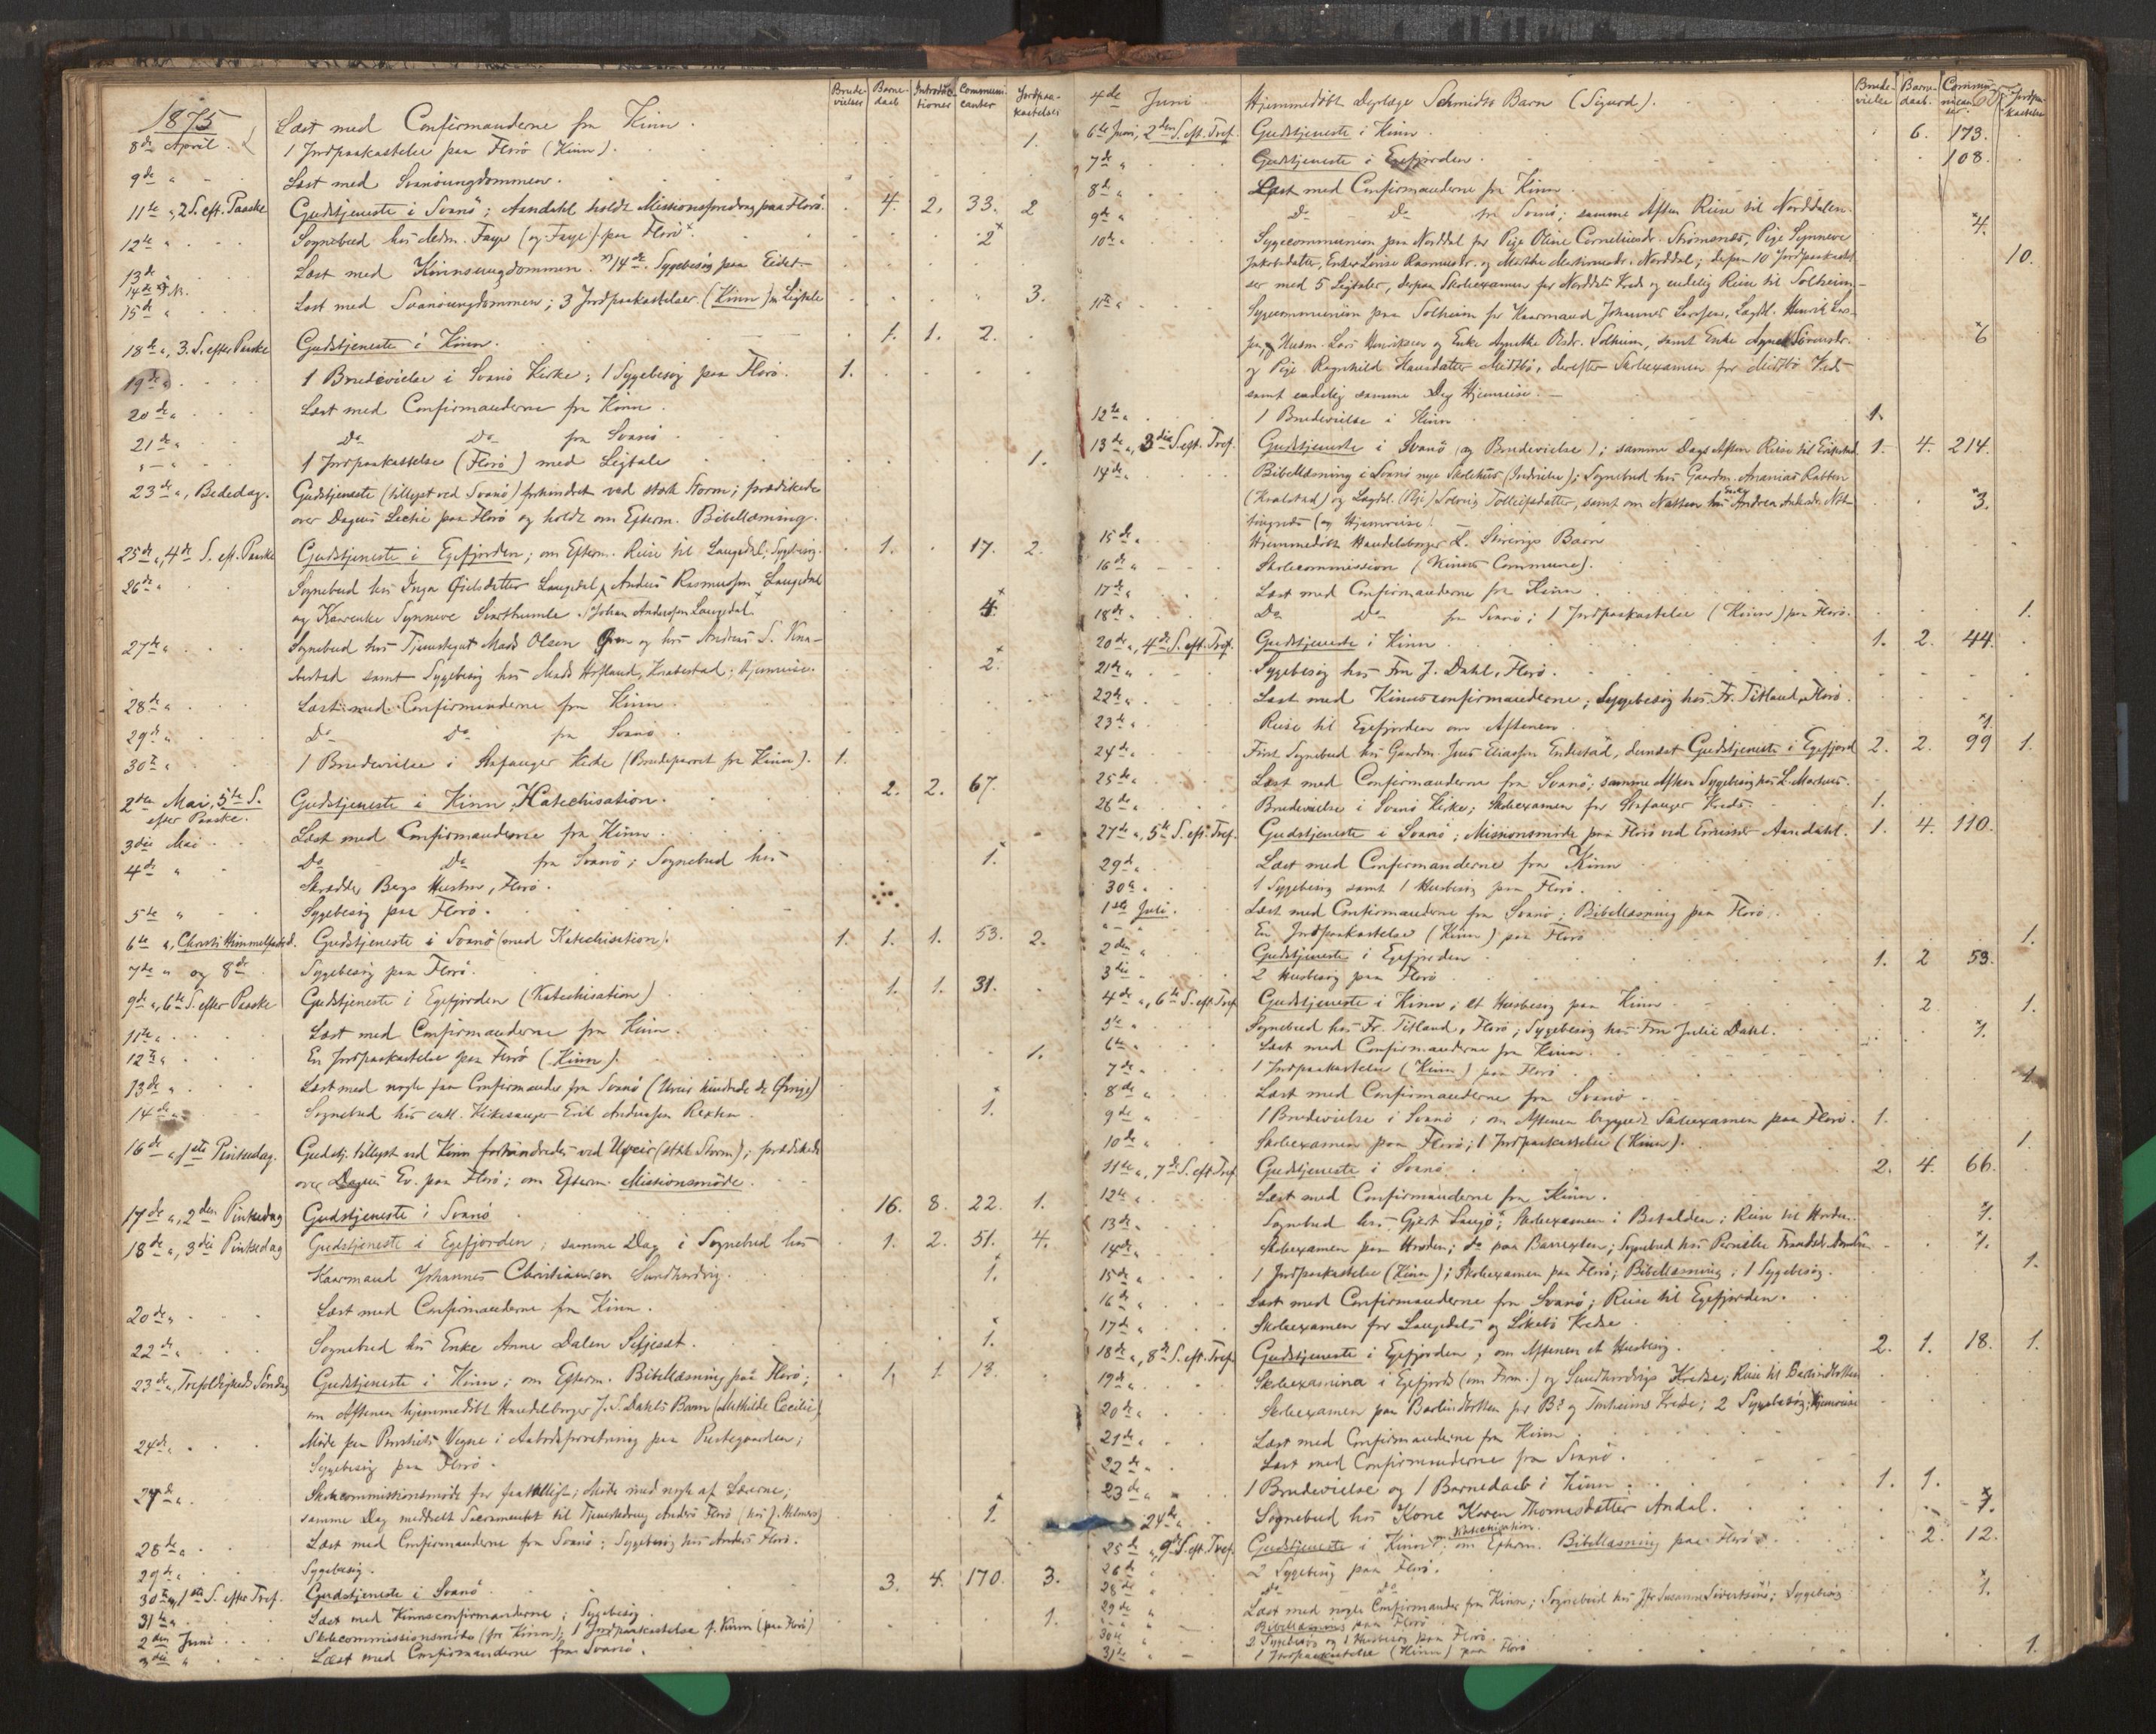 Brude-
vielser
Barne-
daab
Introduc-
tioner
Communi-
canter
Jordpaa-
kastelser
1875
Læst med Confirmanderne fra Kinn.
8de April 1 Jordpaakastelse paa Florö (Kinn). 1.
9de " Læst med Svanöungdommen.
11te ", 2 S. eft. Paaske Gudstjeneste i Svanö; Aandahl holdt Missionsforedrag paa Florö. 4. 2. 33. 2
12te " Sognebud hos Madm. Faye (og Faye) paa Florö x. 2 x
13de Læst med Kinnsungdommen. x) 14de Sygebesög paa Eidet.
14de x) N.
15de " Læst med Svanöungdommen; 3 Jordpaakastelser (Kinn) m Ligtale 3.
18de ", 3. S. efter Paaske Gudstjeneste i Kinn. 1. 1. 2.
19de " 1 Brudevielse i Svanö Kirke; 1 Sygebesög paa Florö. 1.
20de " Læst med Confirmanderne fra Kinn.
21de " Do Do fra Svanö
" — " 1 Jordpaakastelse (Florö) med Ligtale 1.
23de ", Bededag. Gudstjeneste (tillyst ved Svanö) forhindret ved stærk Storm; prædikede
over Dagens Lectie paa Florö og holdt om Efterm. Bibellæsning.
25de ", 4de S. eft. Paaske Gudstjeneste i Egefjorden; om Efterm. Reise til Langedal; Sygebesög. 1. 17. 2.
26de " Sognebud hos Inga Langedal, Anders Rasmussen Langedal
og Kaarenke Synneve Svarthumle. Johan Andersen Langedal x 4 x
27de " Sognebud hos Tjenestegut Mads Olsen og hos Andreas S. Kna-
bestad samt Sygebesög hos Mads Hofland, Knabestad; Hjemreise. 2 x
28de " Læst med Confirmanderne fra Kinn
29de " Do Do fra Svanö
30te " 1 Brudevielse i Stafanger Kirke (Brudeparret fra Kinn). 1.
2den Mai, 5te S.
efter Paaske. Gudstjeneste i Kinn Katechisation. 2. 2. 67.
3die Mai Læst med Confirmanderne fra Kinn.
4de " Do Do fra Svanö; Sognebud hos 1. x
Skrædder Bergs Hustru, Florö.
5te " Sygebesög paa Florö.
6te ", Christi Himmelfartsd. Gudstjeneste i Svanö (med Katechisation). 1. 1. 1. 53. 2.
7de " og 8de Sygebesög paa Florö.
9de ", 6te S. efter Paaske Gudstjeneste i Egefjorden (Katechisation) 1. 1. 31.
11te " Læst med Confirmanderne fra Kinn.
12te " En Jordpaakastelse paa Florö (Kinn). 1.
13de " Læst med nogle faa Confirmander fra Svanö (Uveir hindrede de Övrige)
14de " Sognebud hos entl. Kirkesanger Erik Andreasen Rexten. 1. x
16de ", 1ste Pintsedag. Gudstj. tillyst ved Kinn forhindredes ved Uveir (stærk Storm); prædikede
over Dagens Ev. paa Florö; om Efterm. Missionsmöde.
17de ", 2den Pintsedag Gudstjeneste i Svanö 16. 8. 22. 1.
18de ", 3die Pintsedag Gudstjeneste i Egefjorden; samme Dag i Sognebud hos 1. 2. 51. 4.
Kaarmand Johannes Christiansen Sundhordvig. 1. x
20de " Læst med Confirmanderne fra Kinn.
22de " Sognebud hos Enke Anne Dalen 1. x
23de ", Trefoldigheds Söndag Gudstjeneste i Kinn; om Efterm. Bibellæsning paa Florö; 1. 1. 18.
om Aftenen hjemmedöbt Handelsborger J. S. Dahls Barn (Mathilde Cecilie)
24de " Möde paa Præstens Vegne i Aabodsforretning paa Prestegaarden;
Sygebesög paa Florö.
27de " Skolecommissionsmöde; Möde med nogle af Lærerne;
samme Dag meddeelt Sacramentet til Tjenestedreng Anders Florö (hos J. Helmers) 1. x
28de " Læst med Confirmanderne fra Svanö; Sygebesög hos Anders Florö.
29de " Sygebesög.
30te ", 1ste S. efter Tref. Gudstjeneste i Svanö 3. 4. 170. 3.
31te " Læst med Kinnsconfirmanderne; Sygebesög.
2den Juni Skolecommissionsmöde (for Kinn); 1 Jordpaakastelse f. Kinn (paa Florö) 1.
3die " Læst med Confirmanderne fra Svanö.
Brude-
vielse
Barne-
daab.
Commu-
nican-
ter.
Jordpaa-
kastelse
4de Juni Hjemmedöbt Schmidts Barn (Sigurd).
6te Juni, 2den S. eft. Tref. Gudstjeneste i Kinn 6. 173.
7de " Gudstjeneste i Egefjorden 108.
8de " Læst med Confirmanderne fra Kinn
9de " Do Do fra Svanö; samme Aften Reise til Norddalen.
10de " Sygecommunion paa Norddal for Pige Oline Corneliusdr. Strömsnes, Pige Synneve 4. x
Jakobsdatter, Enke Lovise Rasmusdr. og Marthe Mortensdr. Norddal; derpaa 10 Jordpaakastel- 10.
ser med 5 Ligtaler, derpaa Skoleexamen for Norddals Kreds og endelig Reise til Solheim
11te " Sygecommunion paa Solheim for Kaarmand Johannes Larssen, Lægdl. Henrik Lar-
sen, Husm. Lars Henriksen og Enke Agnethe Solheim, samt Enke 6 x
og Pige Ragnhild Hansdatter Midtbö, derefter Skoleexamen for Midtbö Kreds
samt endelig samme Dag Hjemreise. —
12te " 1 Brudevielse i Kinn 1.
13de ", 3die S. eft. Tref. Gudstjeneste i Svanö (og Brudevielse); samme Dags Aften Reise til Erikstad. 1. 4. 214.
14de " Bibellæsning i Svanö nye Skolehus (Indvielse); Sognebud hos Gaardm. Ananias Rabben
(Kvalstad) og Lægdsl. (Pige) Solveig Tollefsdatter, samt om Natten hos Enke Andrea 3. x
(og Hjemreise).
15de " Hjemmedöbt Handelsborger L. Barn
16de " Skolecommission (Kinns Commune).
17de " Læst med Confirmanderne fra Kinn
18de " Do Do fra Svanö; 1 Jordpaakastelse (Kinn) paa Florö. 1.
20de ", 4de S. eft. Tref. Gudstjeneste i Kinn 1. 2. 44.
21de " Sygebesög hos Fru J. Dahl, Florö.
22de " Læst med Kinnsconfirmanderne; Sygebesög hos Fr. Titland, Florö.
23de " Reise til Egefjorden om Aftenen
24de " Först Sognebud hos Gaardm. Jens Eliassen Endestad, dernæst Gudstjeneste i Egefjord 2. 2. 1 x 99 1.
25de " Læst med Confirmanderne fra Svanö; samme Aften Sygebesög hos L. Markus.
26de " Brudevielse i Svanö Kirke; Skoleexamen for Stafanger Kreds. 1.
27de ", 5te S. eft. Tref. Gudstjeneste i Svanö; Missionsmöde paa Florö ved Emissær Aandahl. 1. 4. 110.
29de " Læst med Confirmanderne fra Kinn
30te " 1 Sygebesög samt 1 Husbesög paa Florö.
1ste Juli. Læst med Confirmanderne fra Svanö; Bibellæsning paa Florö.
" — " En Jordpaakastelse (Kinn) paa Florö 1.
2den " Gudstjeneste i Egefjorden 1. 2 53.
3die " 2 Husbesög paa Florö
4de ", 6te S. eft. Tref. Gudstjeneste i Kinn; et Husbesög paa Kinn 2 1.
5te " Sognebud hos Fr. Titland, Florö; Sygebesög hos Fru Julie Dahl. 1. x
6te " Læst med Confirmanderne fra Kinn.
7de " 1 Jordpaakastelse (Kinn) paa Florö 1
8de " Læst med Confirmanderne fra Svanö
9de " 1 Brudevielse i Svanö; om Aftenen begyndt Skoleexamen paa Florö. 1.
10de " Skoleexamen paa Florö; 1 Jordpaakastelse (Kinn). 1.
11te ", 7de S. eft. Tref. Gudstjeneste i Svanö 2. 4. 66.
12te " Læst med Confirmanderne fra Kinn.
13de " Sognebud hos Gjert; Skoleexamen i Batalden; Reise til Hovden. 1. x
14de " Skoleexamen paa Hovden; do paa Barrexten; Sognebud hos Pernille 1. x
15de " 1 Jordpaakastelse (Kinn); Skoleexamen paa Florö; Bibellæsning; 1 Sygebesög. 1.
16de " Læst med Confirmanderne fra Svanö; Reise til Egefjorden.
17de " Skoleexamen for Langedals og Lökebö Kredse
18de ", 8de S. eft. Tref. Gudstjeneste i Egefjorden; om Aftenen et Husbesög. 2. 1. 18. 1.
19de " Skoleexamina i Egefjords (om Form.) og Sundhordvigs Kredse; Reise til Barlindbotten
20de " Skoleexamen paa Barlindbotten for Bs og Kredse; 2 Sygebesög; Hjemreise
21de " Læst med Confirmanderne fra Kinn
22de " Læst med Confirmanderne fra Svanö.
23de " 1 Brudevielse og 1 Barnedaab i Kinn 1. 1.
24de " Sognebud hos Kone Karen Thomasdatter Andal. 1. x
25de ", 9de S. eft. Tref. Gudstjeneste i Kinn m Katechisation; om Efterm. Bibellæsning paa Florö. 2. 12.
26de " 2 Sygebesög paa Florö.
28de " Do Do
29de " Læst med nogle Confirmander fra Kinn; Sognebud hos Jfr Susanne; Sygebesög 1. x
" — " Bibellæsning paa Florö
30te " 2 Sygebesög og 1 Husbesög paa Florö.
31te " 1 Jordpaakastelse (Kinn) paa Florö 1.